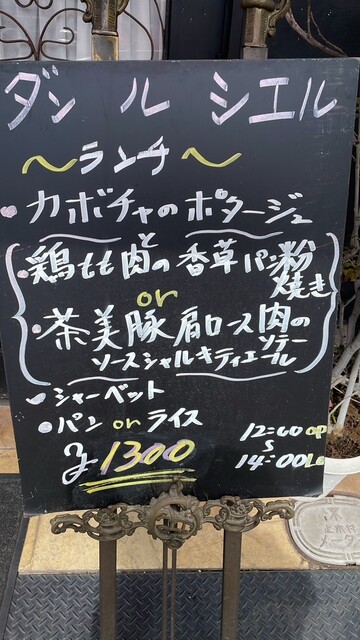 ダン ル シエル
〜ランチ〜
・カボチャのポタージュ
と
・鶏もも肉の香草パン粉
焼き
or
・茶美豚肩ロース肉の
ソテー
ソースシャルキティエール
・シャーベット
・パン or ライス
¥1300
12:00op
14:00Lo